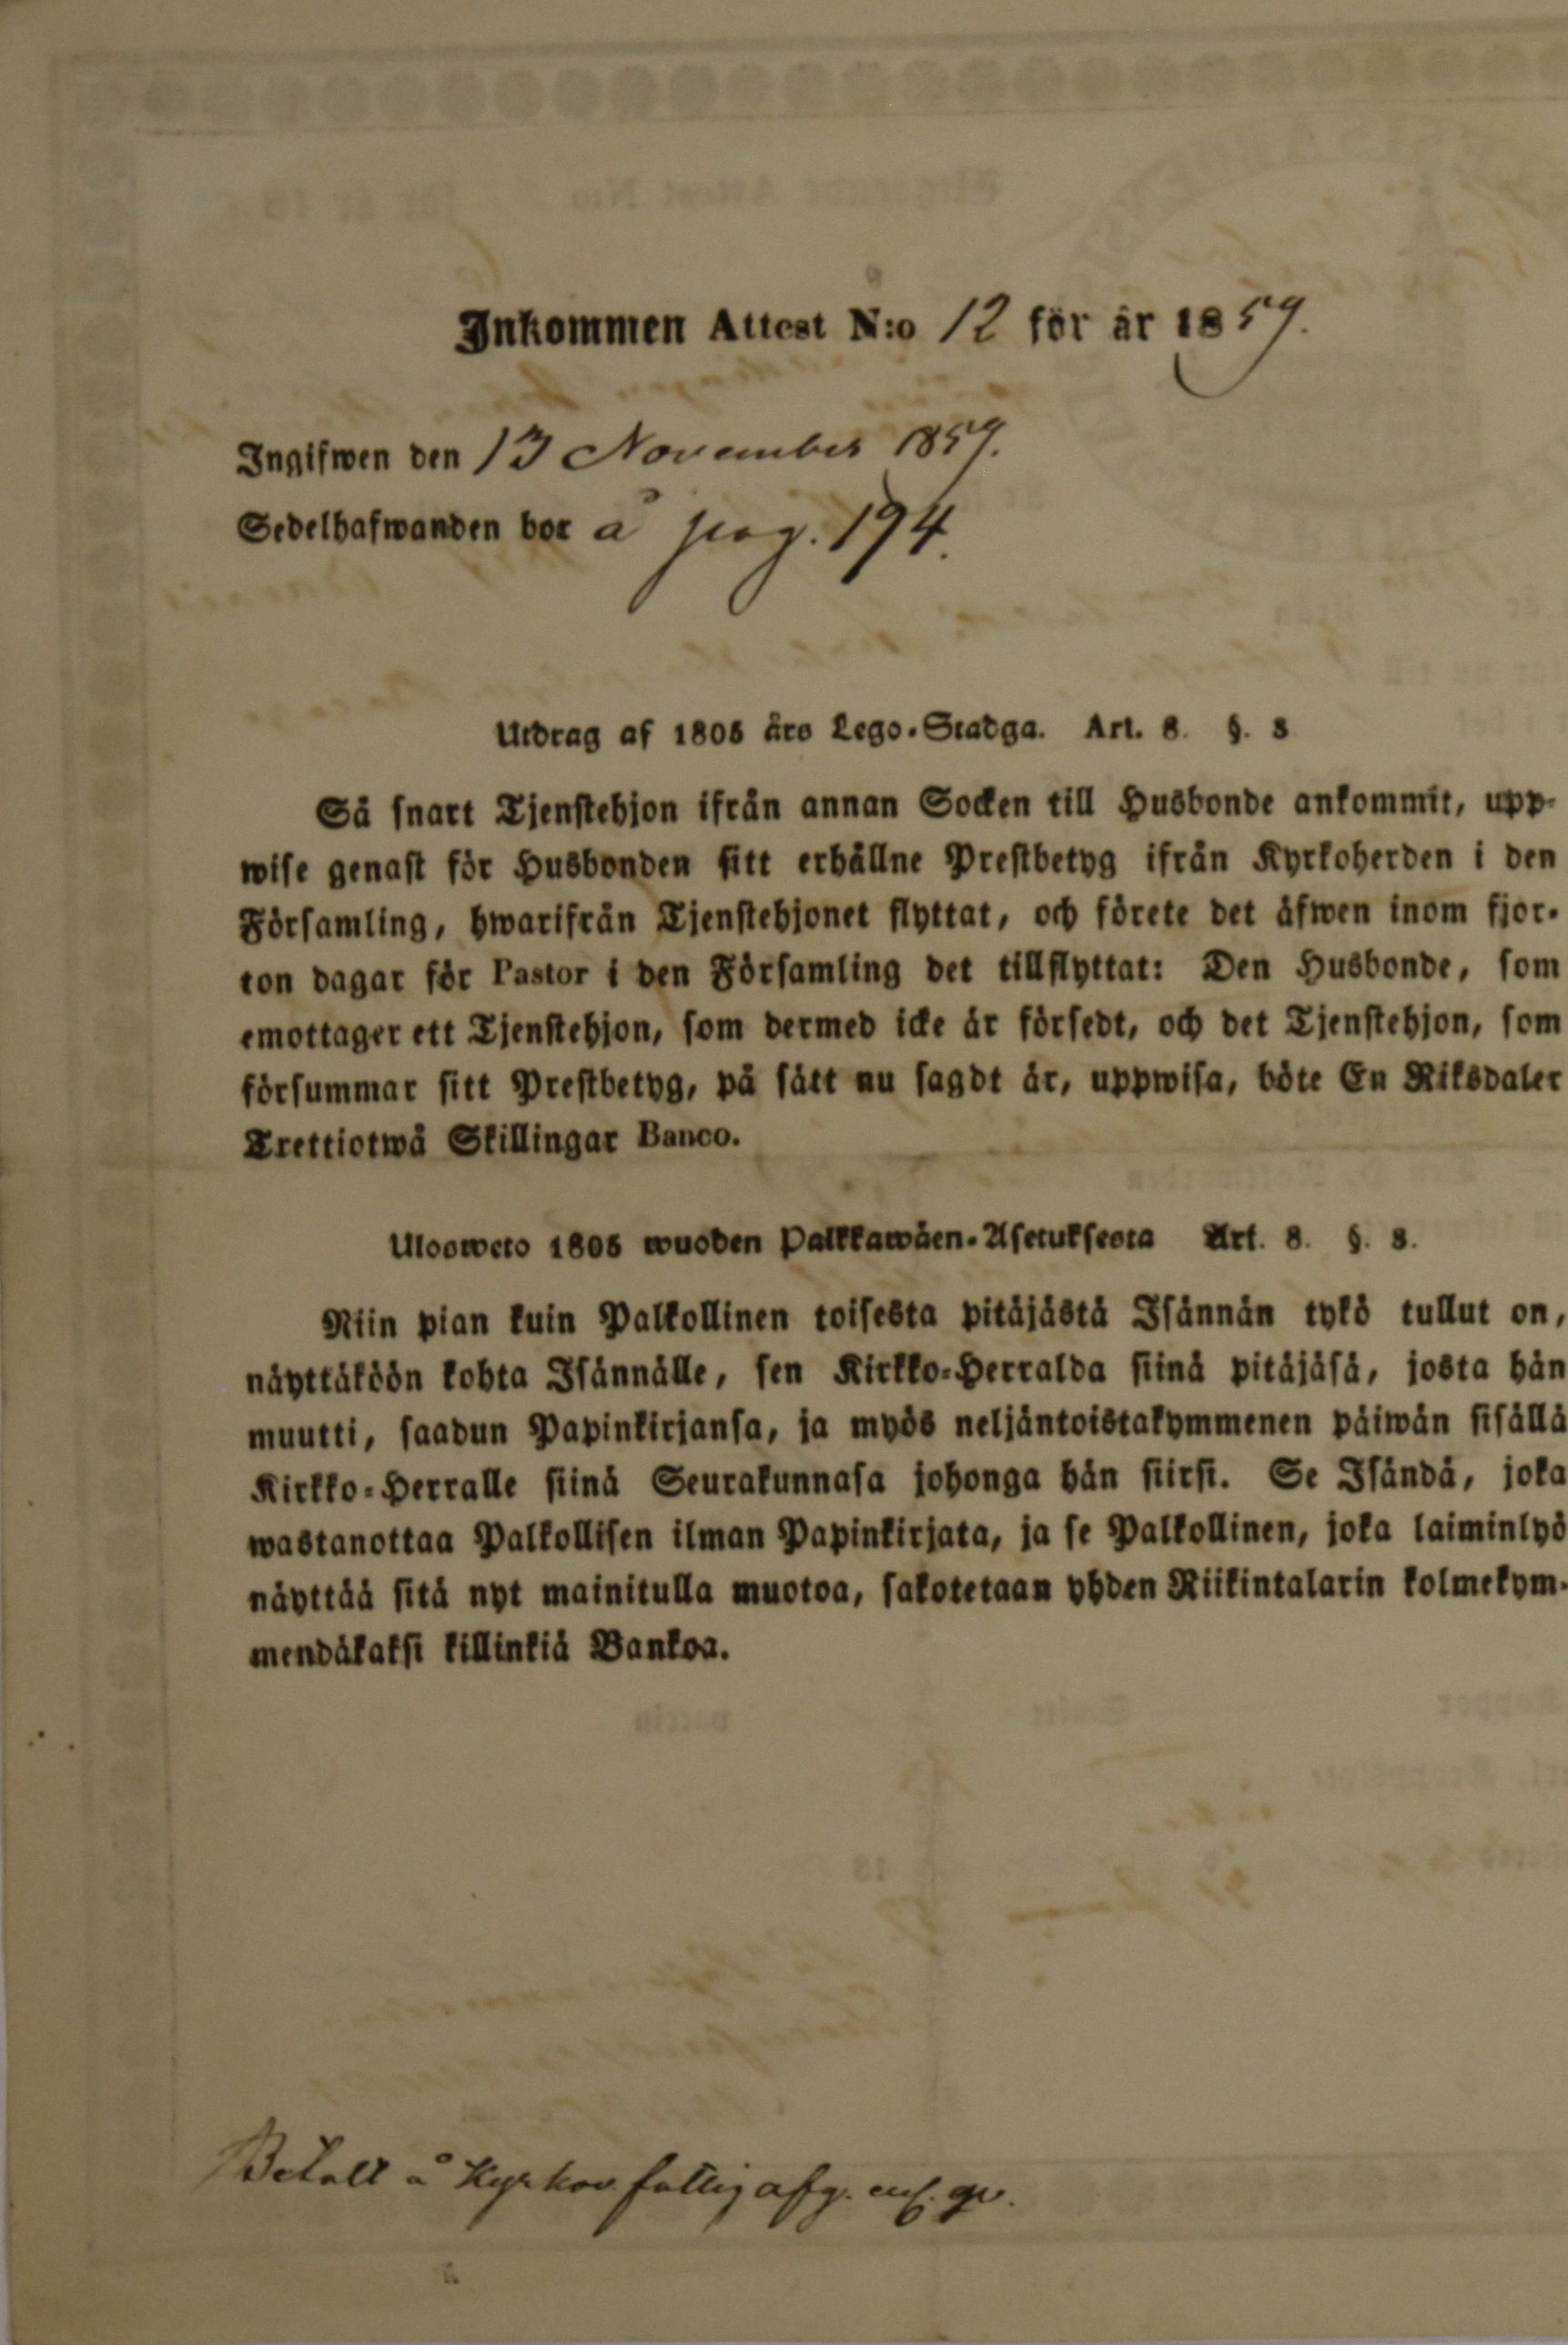 Inkommen Attest N:o 12 för år 1859.
Ingifwen den 13 November 1859.
Sedelhafwanden bor å pag. 194.
Utdrag af 1805 års Lego-Stadga. Art. 8. §. 8
Så snart Tjenstehjon ifrån annan Socken till Husbonde ankommit, upp-
wise genast för Husbonden sitt erhållne Prestbetyg ifrån Kyrkoherden i den
Församling, hwarifrån Tjenstehjonet flyttat, och förete det äfwen inom fjor-
ton dagar för Pastor i den Församling det tillflyttat: Den Husbonde, som
emottager ett Tjenstehjon, som dermed icke är försedt, och det Tjenstehjon, som
försummar sitt Prestbetyg, på sätt nu sagdt är, uppwisa, böte En Riksdaler
Trettiotwå Skillingar Banco.
Ulosweto 1805 wuoden Palkkawäen-Asetuksesta Art. 8. §. 8.
Niin pian kuin Palkollinen toisesta pitäjästä Isännän tykö tullut on,
näyttäköön kohta Isännälle, sen Kirkko-Herralda siinä pitäjäsä, josta hän
muutti, saadun Papinkirjansa, ja myös neljäntoistakymmenen päiwän sisällä
Kirkko-Herralle siinä Seurakunnasa johonga hän siirsi. Se Isändä, joka
wastanottaa Palkollisen ilman Papinkirjata, ja se Palkollinen, joka laiminlyö
näyttää sitä nyt mainitulla muotoa, sakotetaan yhden Riikintalarin kolmekym-
mendäkaksi killinkiä Bankoa.
Betalt å Kyrkov. fattig afg. enl. qv.